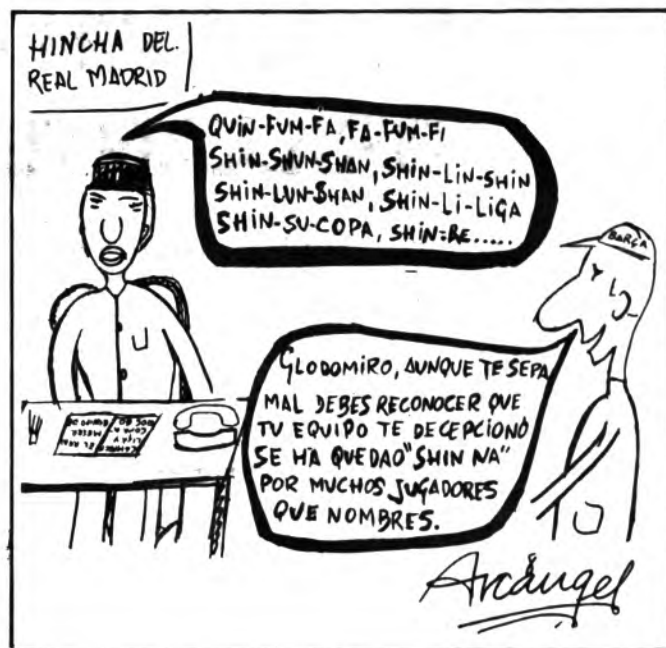 HINCHA DEL.
REAL MADRID
QUIN-FUM-FA, FA-FUM-FI
SHIN-SHUN-SHAN, SHIN-LIN-SHIN
SHIN-LUN-SHAN, SHIN-LI-LIGA
SHIN-SU-COPA, SHIN=RE.....
BARÇA
GLODOMIRO, AUNQUE TE SEPA
MAL DEBES RECONOCER QUE
TU EQUIPO TE DECEPCIONÓ
SE HA QUEDAO "SHIN NA"
POR MUCHOS JUGADORES
QUE NOMBRES.
EL REAL
MEJOR
EQUIPO DE
LIGA Y
Arcángel